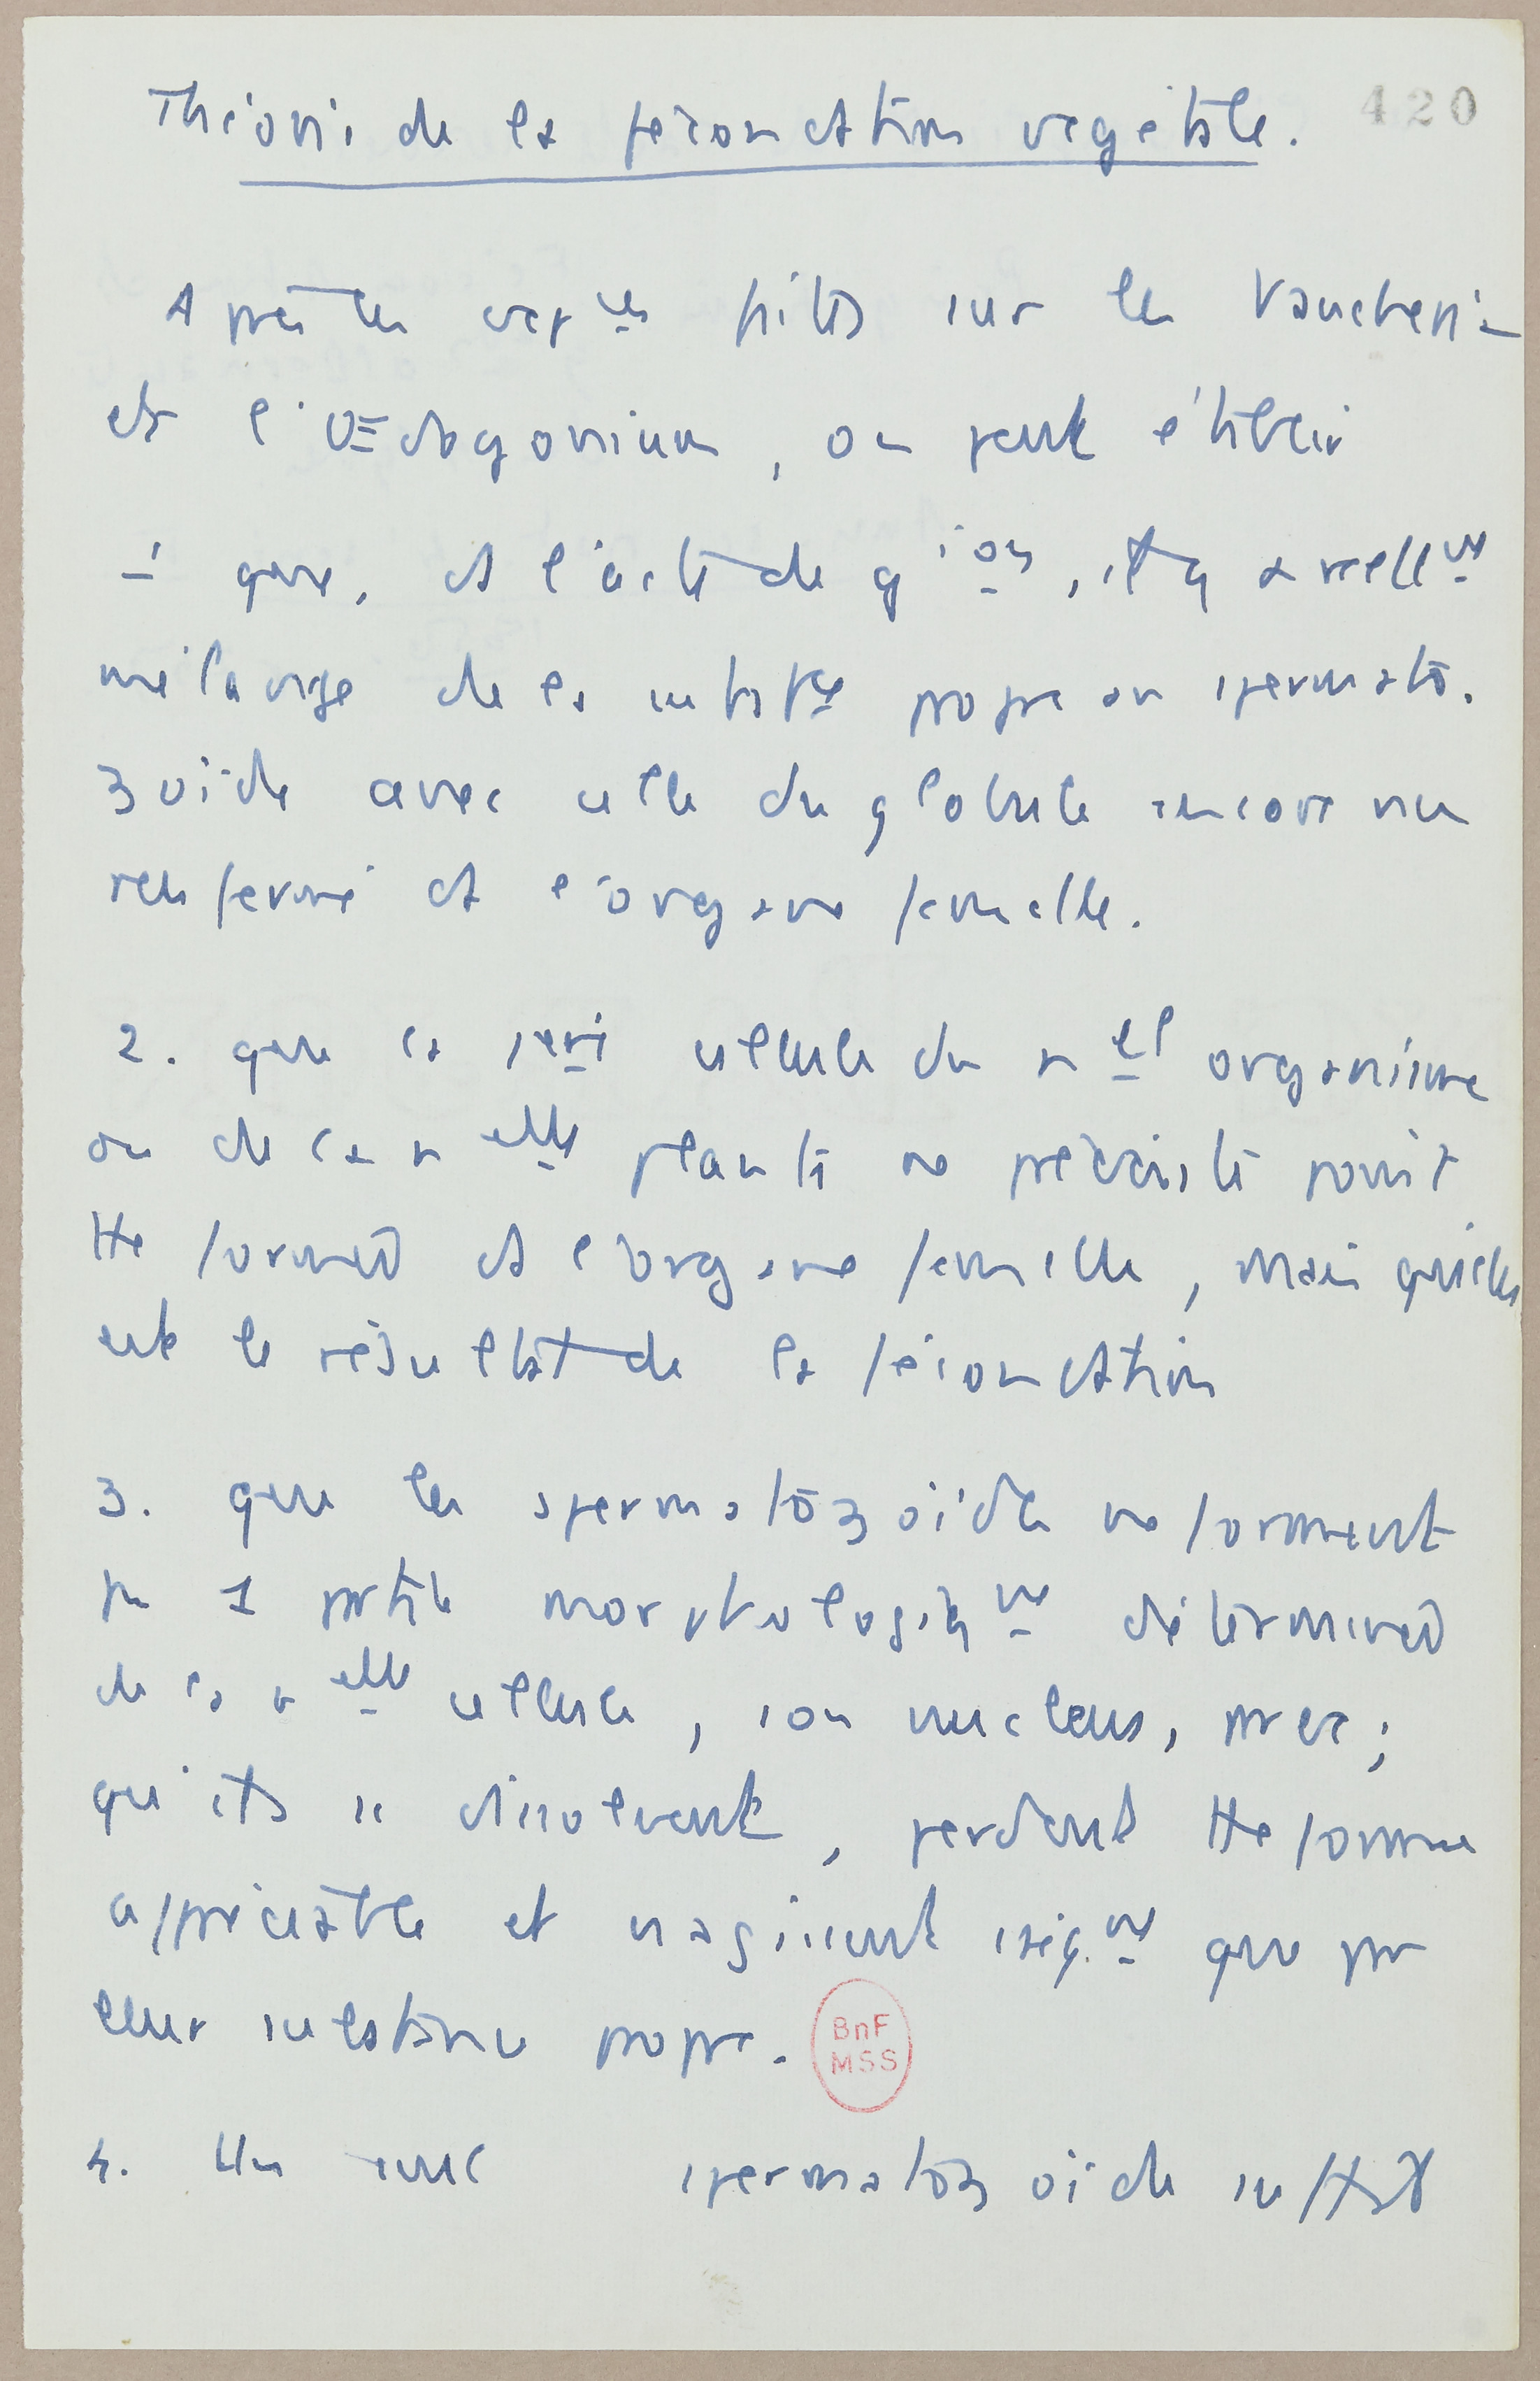 Théorie de la fécondation végétale. 420
Après les expces faites sur les Vaucheria
et l'Œdogonium, on peut établir
1 que, ds l'acte de gion, il y a réellmt
mélange de la substce propre au spermato-
zoïde avec celle du globule encore nu
renfermé ds l'organe femelle.
2. que la cellule du nel organisme
ou de la nelle plante ne préexiste point
tte formée ds l'organe femelle, mais qu'elle
est le résultat de la fécondation
3. que les spermatozoïdes ne forment
pas 1 partie morphologique déterminée
de la nelle cellule, son nucleus, par ex;
qu'ils se dissolvent, perdent tte forme
appréciable et n'agissent que par
leur substance propre.
BnF
MSS
4. Un seul spermatozoïde suffit